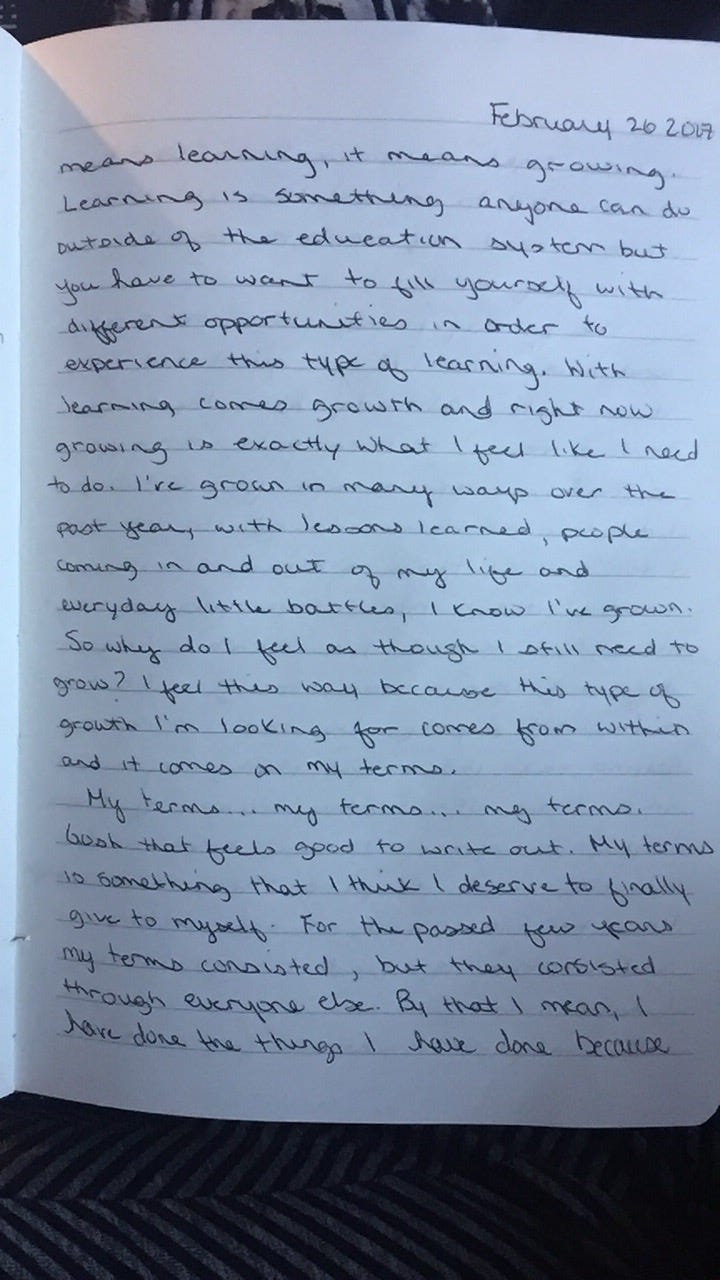 February 26 2017
means learning, it means growing.
Learning is something anyone can do
outside of the education system but
you have to want to fill yourself with
different opportunities in order to
experience this type of learning. With
learning comes growth and right now
growing is exactly what I feel like I need
to do. I've grown in many ways over the
past year, with lessons learned, people
coming in and out of my life and
everyday little battles, I know I've grown.
So why do I feel as though I still need to
grow? I feel this way because this type of
growth I'm looking for comes from within
and it comes on my terms.
My terms... my terms... my terms.
Gosh that feels good to write out. My terms
is something that I think I deserve to finally
give to myself. For the passed few years
my terms consisted, but they consisted
through everyone else. By that I mean, I
have done the things I have done because